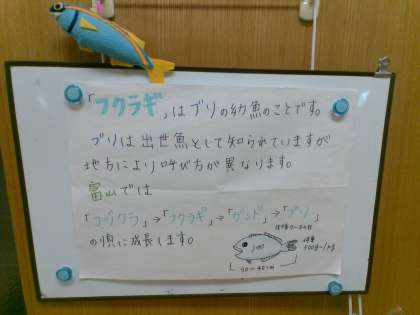 「フクラギ」はブリの幼魚のことです。
ブリは出世魚として知られていますが
地方により呼び方が異なります。
富山では
「コヅクラ」→「フクラギ」→「ガンド」→「ブリ」
の順に成長します。
体重
500g~1kg
30~40cm